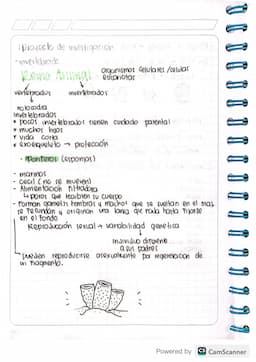 Proyecto de investigación
-invertebrado
Reino Animal organismos celulares/celular
eucariotas
vertebrados invertebrados
Invertebrados
* pocos invertebrados tienen cuidado parental
* muchos hijos
* vida corta
* exoesqueleto → protección
- Poríferos (esponjas)
- marinos
- cecil (no se mueven)
- Alimentación filtradora
↳ poros que habitan su cuerpo
- Forman gametos hembras y machos que se sueltan en el mar,
se fecundan y originan una larva que nada hasta fijarse
en el fondo
Reproducción sexual → variabilidad genética
Individuo diferente
a sus padres
Pueden reproducirse asexualmente por regeneración de
un fragmento.
Powered by CS CamScanner